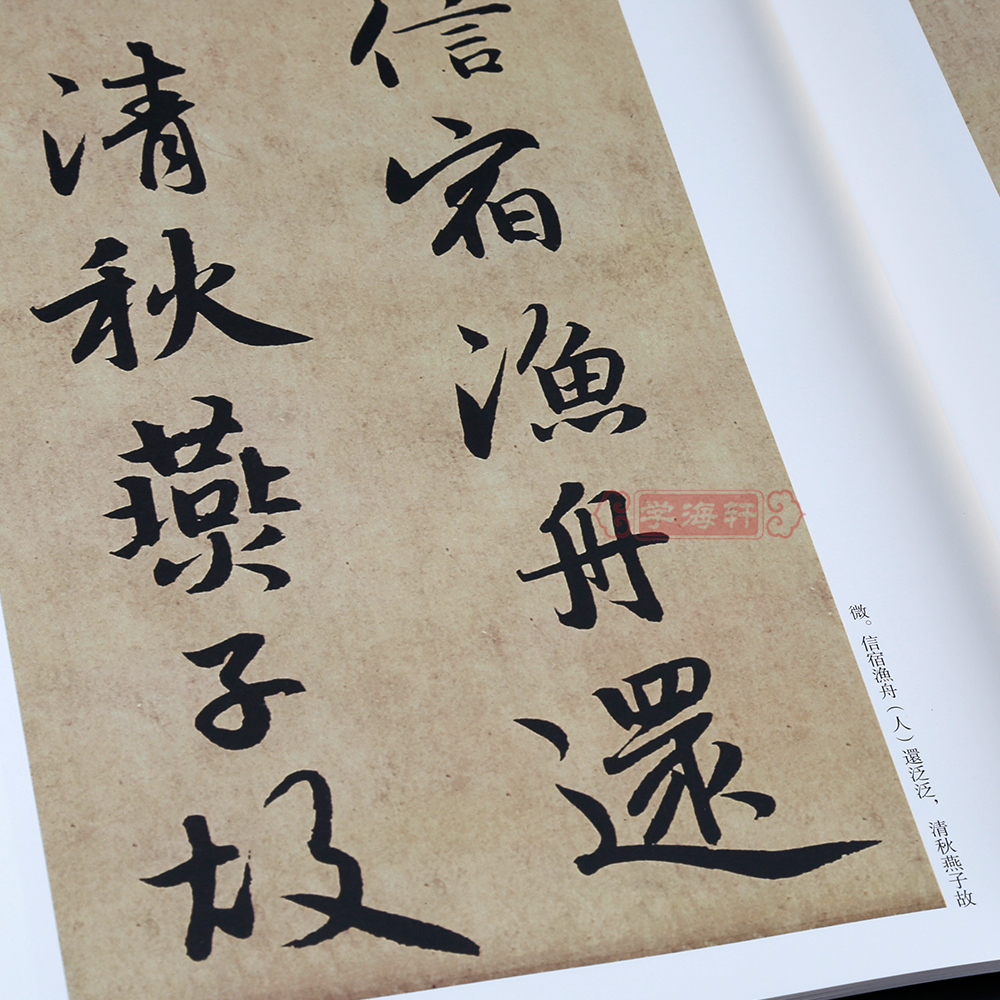 信宿漁舟還
清秋燕子故
微。信宿漁舟（人）還泛泛，清秋燕子故
学海轩